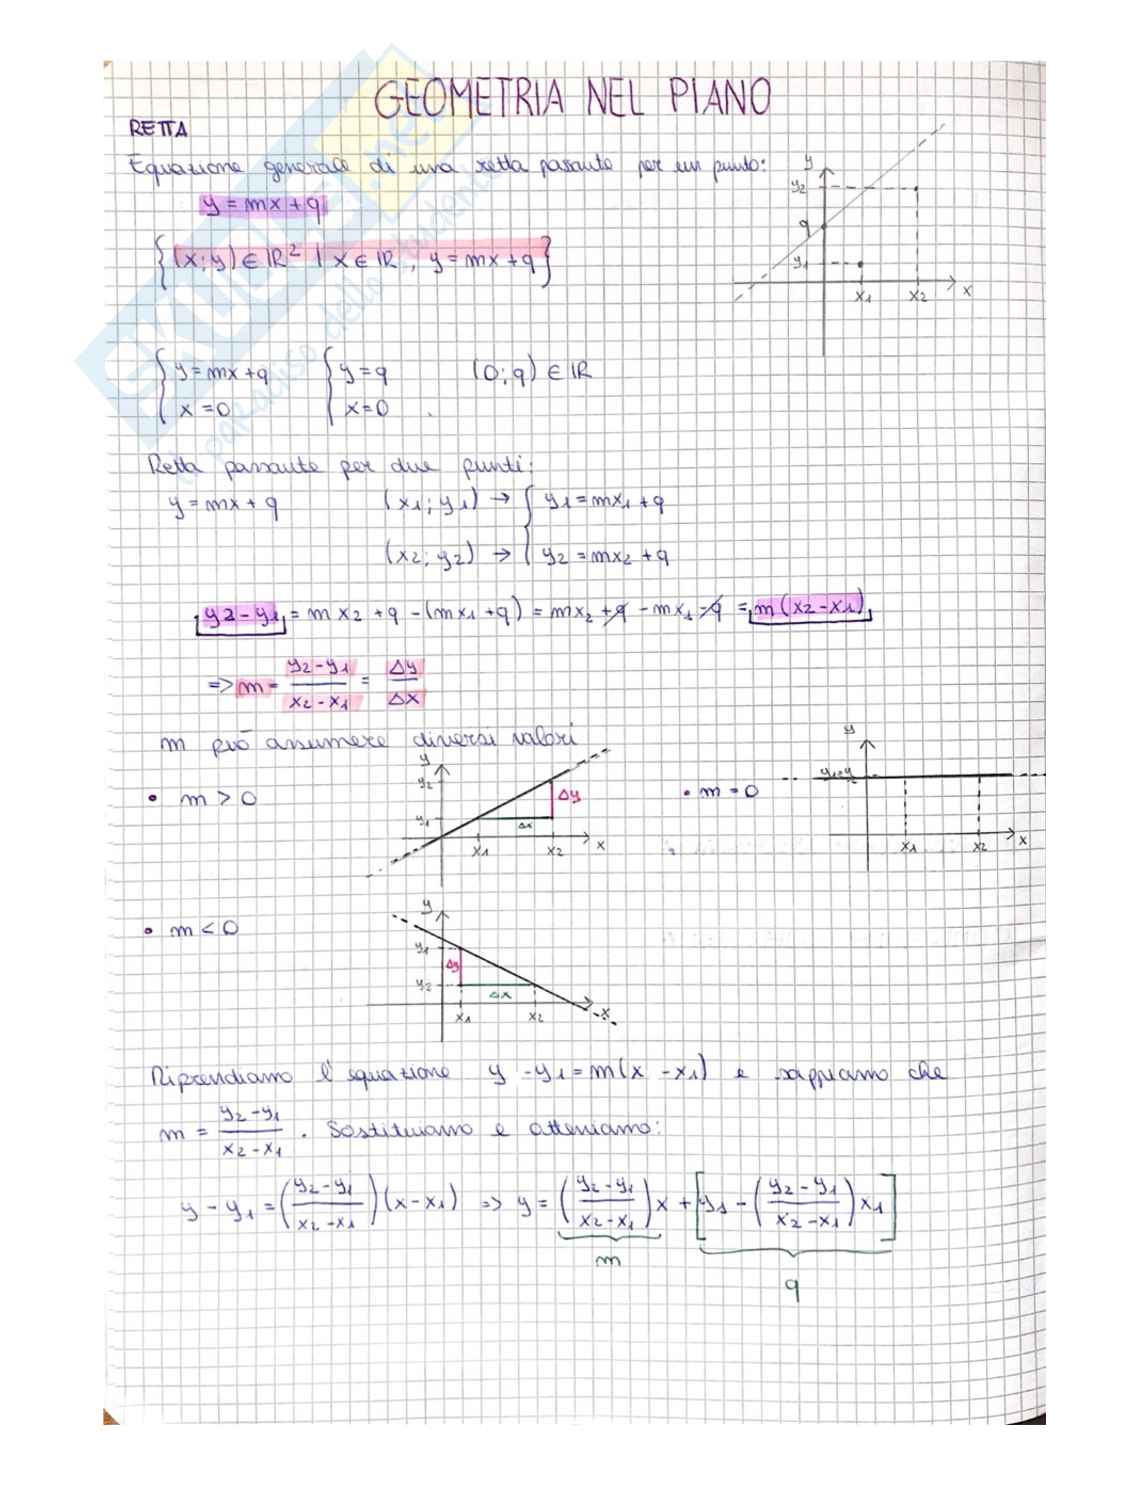 GEOMETRIA NEL PIANO
RETTA
Equazione generale di una retta passante per un punto:
y = mx + q
{(x;y) ∈ ℝ² | x ∈ ℝ, y = mx + q}
y
y2
q
y1
x1 x2 x
{ y = mx + q { y = q (0;q) ∈ ℝ
x = 0 x = 0
Retta passante per due punti:
y = mx + q (x1; y1) → { y1 = mx1 + q
(x2; y2) → y2 = mx2 + q
y2 - y1 = mx2 + q - (mx1 + q) = mx2 + q - mx1 - q = m(x2 - x1)
=> m = (y2 - y1)/(x2 - x1) = Δy/Δx
m può assumere diversi valori
• m > 0
y
y2
y1
Δy
Δx
x1 x2 x
• m = 0
y
y1=y2
x1 x2 x
• m < 0
y
y1
Δy
y2
Δx
x1 x2 x
Riprendiamo l'equazione y - y1 = m(x - x1) e sappiamo che
m = (y2 - y1)/(x2 - x1) . Sostituiamo e otteniamo:
y - y1 = ((y2 - y1)/(x2 - x1))(x - x1) => y = ((y2 - y1)/(x2 - x1))x + [y1 - ((y2 - y1)/(x2 - x1))x1]
m
q
SKUOLA.net
il paradiso dello studente